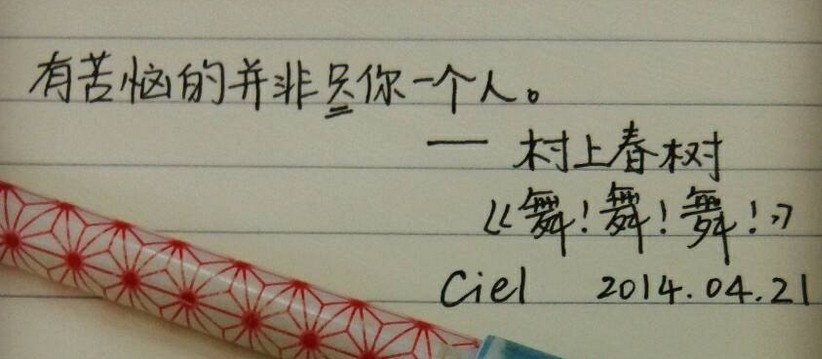 有苦恼的并非只你一个人。
— 村上春树
《舞！舞！舞！》
Ciel 2014.04.21